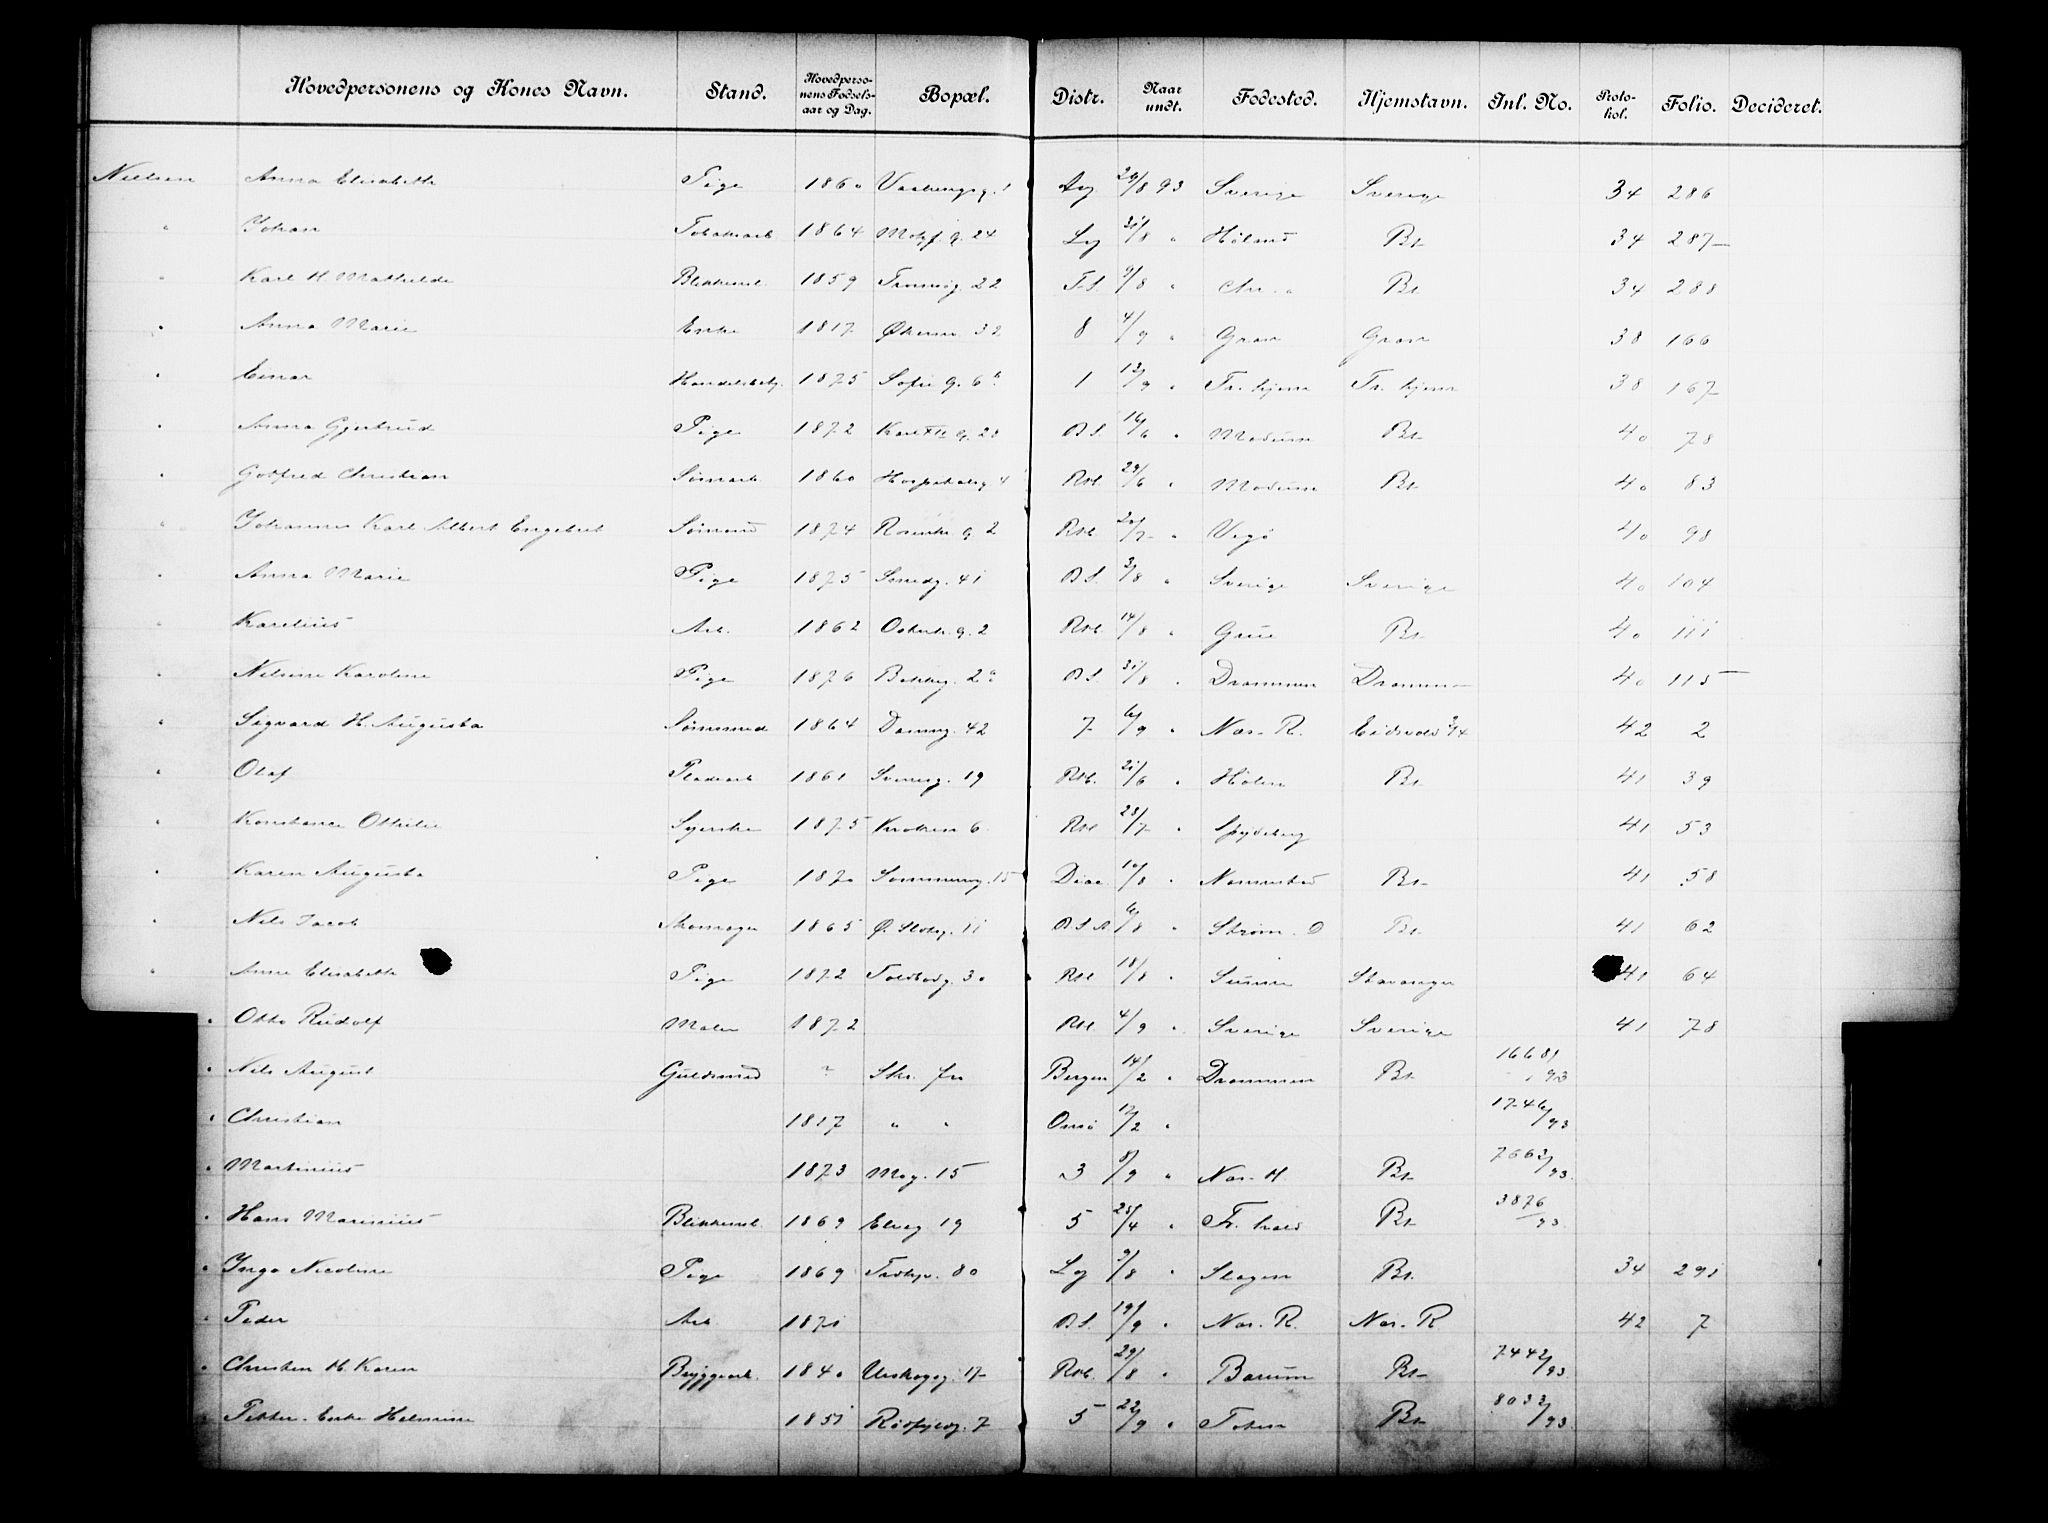 Hovedpersonens og Kones Navn. Stand. Hovedpersonens Fødselsaar og Dag. Bopæl. Distr. Naar undt. Fødested. Hjemstavn. Inl. No. Protokol. Folio. Decideret.
Nielsen Anna Elisabeth Pige 1860 1 20/8 93 Sverige Sverige 34 286
" Johan 1864 24 Lg 21/8 " Høland Bt 34 287
" Karl H. Mathilde Blikkensl. 1859 22 9/8 " 34 288
" Anna Marie Enke 1817 Økern 32 8 4/9 " Gran Gran 38 166
" Einar Handelsbetj. 1875 Sofie g. 6 1 12/9 " Tr.hjem Tr.hjem 38 167
" Anna Gjertrud Pige 1872 20 B S. 16/6 " Modum Bt 40 78
" Gotfred Christian 1860 Hospitalsg 4 Rbl. 29/6 " Modum Bt 40 83
" Johannes Karl Albert Engebret Sømand 1874 2 Rbl. 20/7 " Vegø 40 98
" Anna Marie Pige 1875 Smedg. 41 B S. 3/8 " Sverige Sverige 40 104
" Karelius Arb. 1862 2 Rbl. 14/8 " Grue Bt 40 111
" Nilsine Karoline Pige 1876 2 B S. 31/8 " Drammen Drammen 40 115
" Sigvard H. Augusta Sømand 1864 42 7 6/9 " Nes. R. 42 2
" Olaf 1861 19 Rbl. 21/6 " Hølen Bt 41 39
" Konstance Othilie Syerske 1875 Kroken 6 Rbl 28/7 " Spydeberg 41 53
" Karen Augusta Pige 1870 15 10/8 " Bt 41 58
" Nils Jacob Skomager 1865 Ø. Slotsg. 11 6/8 " Strøm. O Bt 41 62
" Anne Elisabeth Pige 1872 Toldbodg. 30 Rbl 18/8 " Stavanger 41 64
" Otto Rudolf Maler 1872 Rbl. 4/9 " Sverige Sverige 41 78
" Nils August Guldsmed ? Skr. fra Bergen 14/2 " Drammen Bt 1668/93
" Christian 1817 " " Onsø 17/2 " 1746/93
" Martinius 1873 15 3 8/9 " Nes. H Bt 7662/93
" Hans Marinius Blikkensl. 1869 Elveg 19 5 25/4 " Fr. hald Bt 3876/93
" Inga Nicoline Pige 1869 80 Lg 9/8 " Slagen Bt. 34 291
" Peder Arb. 1871 B S. 19/9 " Nes. R. Nes. R 42 7
" Christen H. Karen Bryggearb. 1840 Urskogsg. 17 Rbl. 29/8 " Bærum Bt 7442/93
" Petter. Enke Helmine 1851 7 5 22/9 " Toten Bt 8032/93